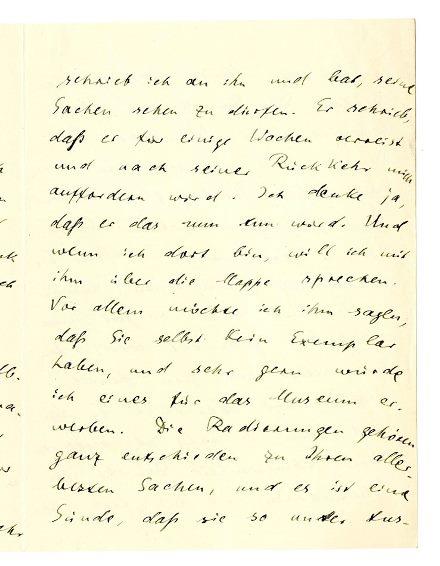 schrieb ich an ihn und bat, seine
Sachen sehen zu dürfen. Er schrieb,
daß er für einige Wochen verreist
und nach seiner Rückkehr mich
auffordern wird. Ich denke ja,
daß er das nun tun wird. Und
wenn ich dort bin, will ich mit
ihm über die Mappe sprechen.
Vor allem möchte ich ihm sagen,
daß Sie selbst kein Exemplar
haben, und sehr gern würde
ich eines für das Museum er-
werben. Die Radierungen gehören
ganz entschieden zu Ihren aller-
besten Sachen, und es ist eine
Sünde, daß sie so unter Aus-